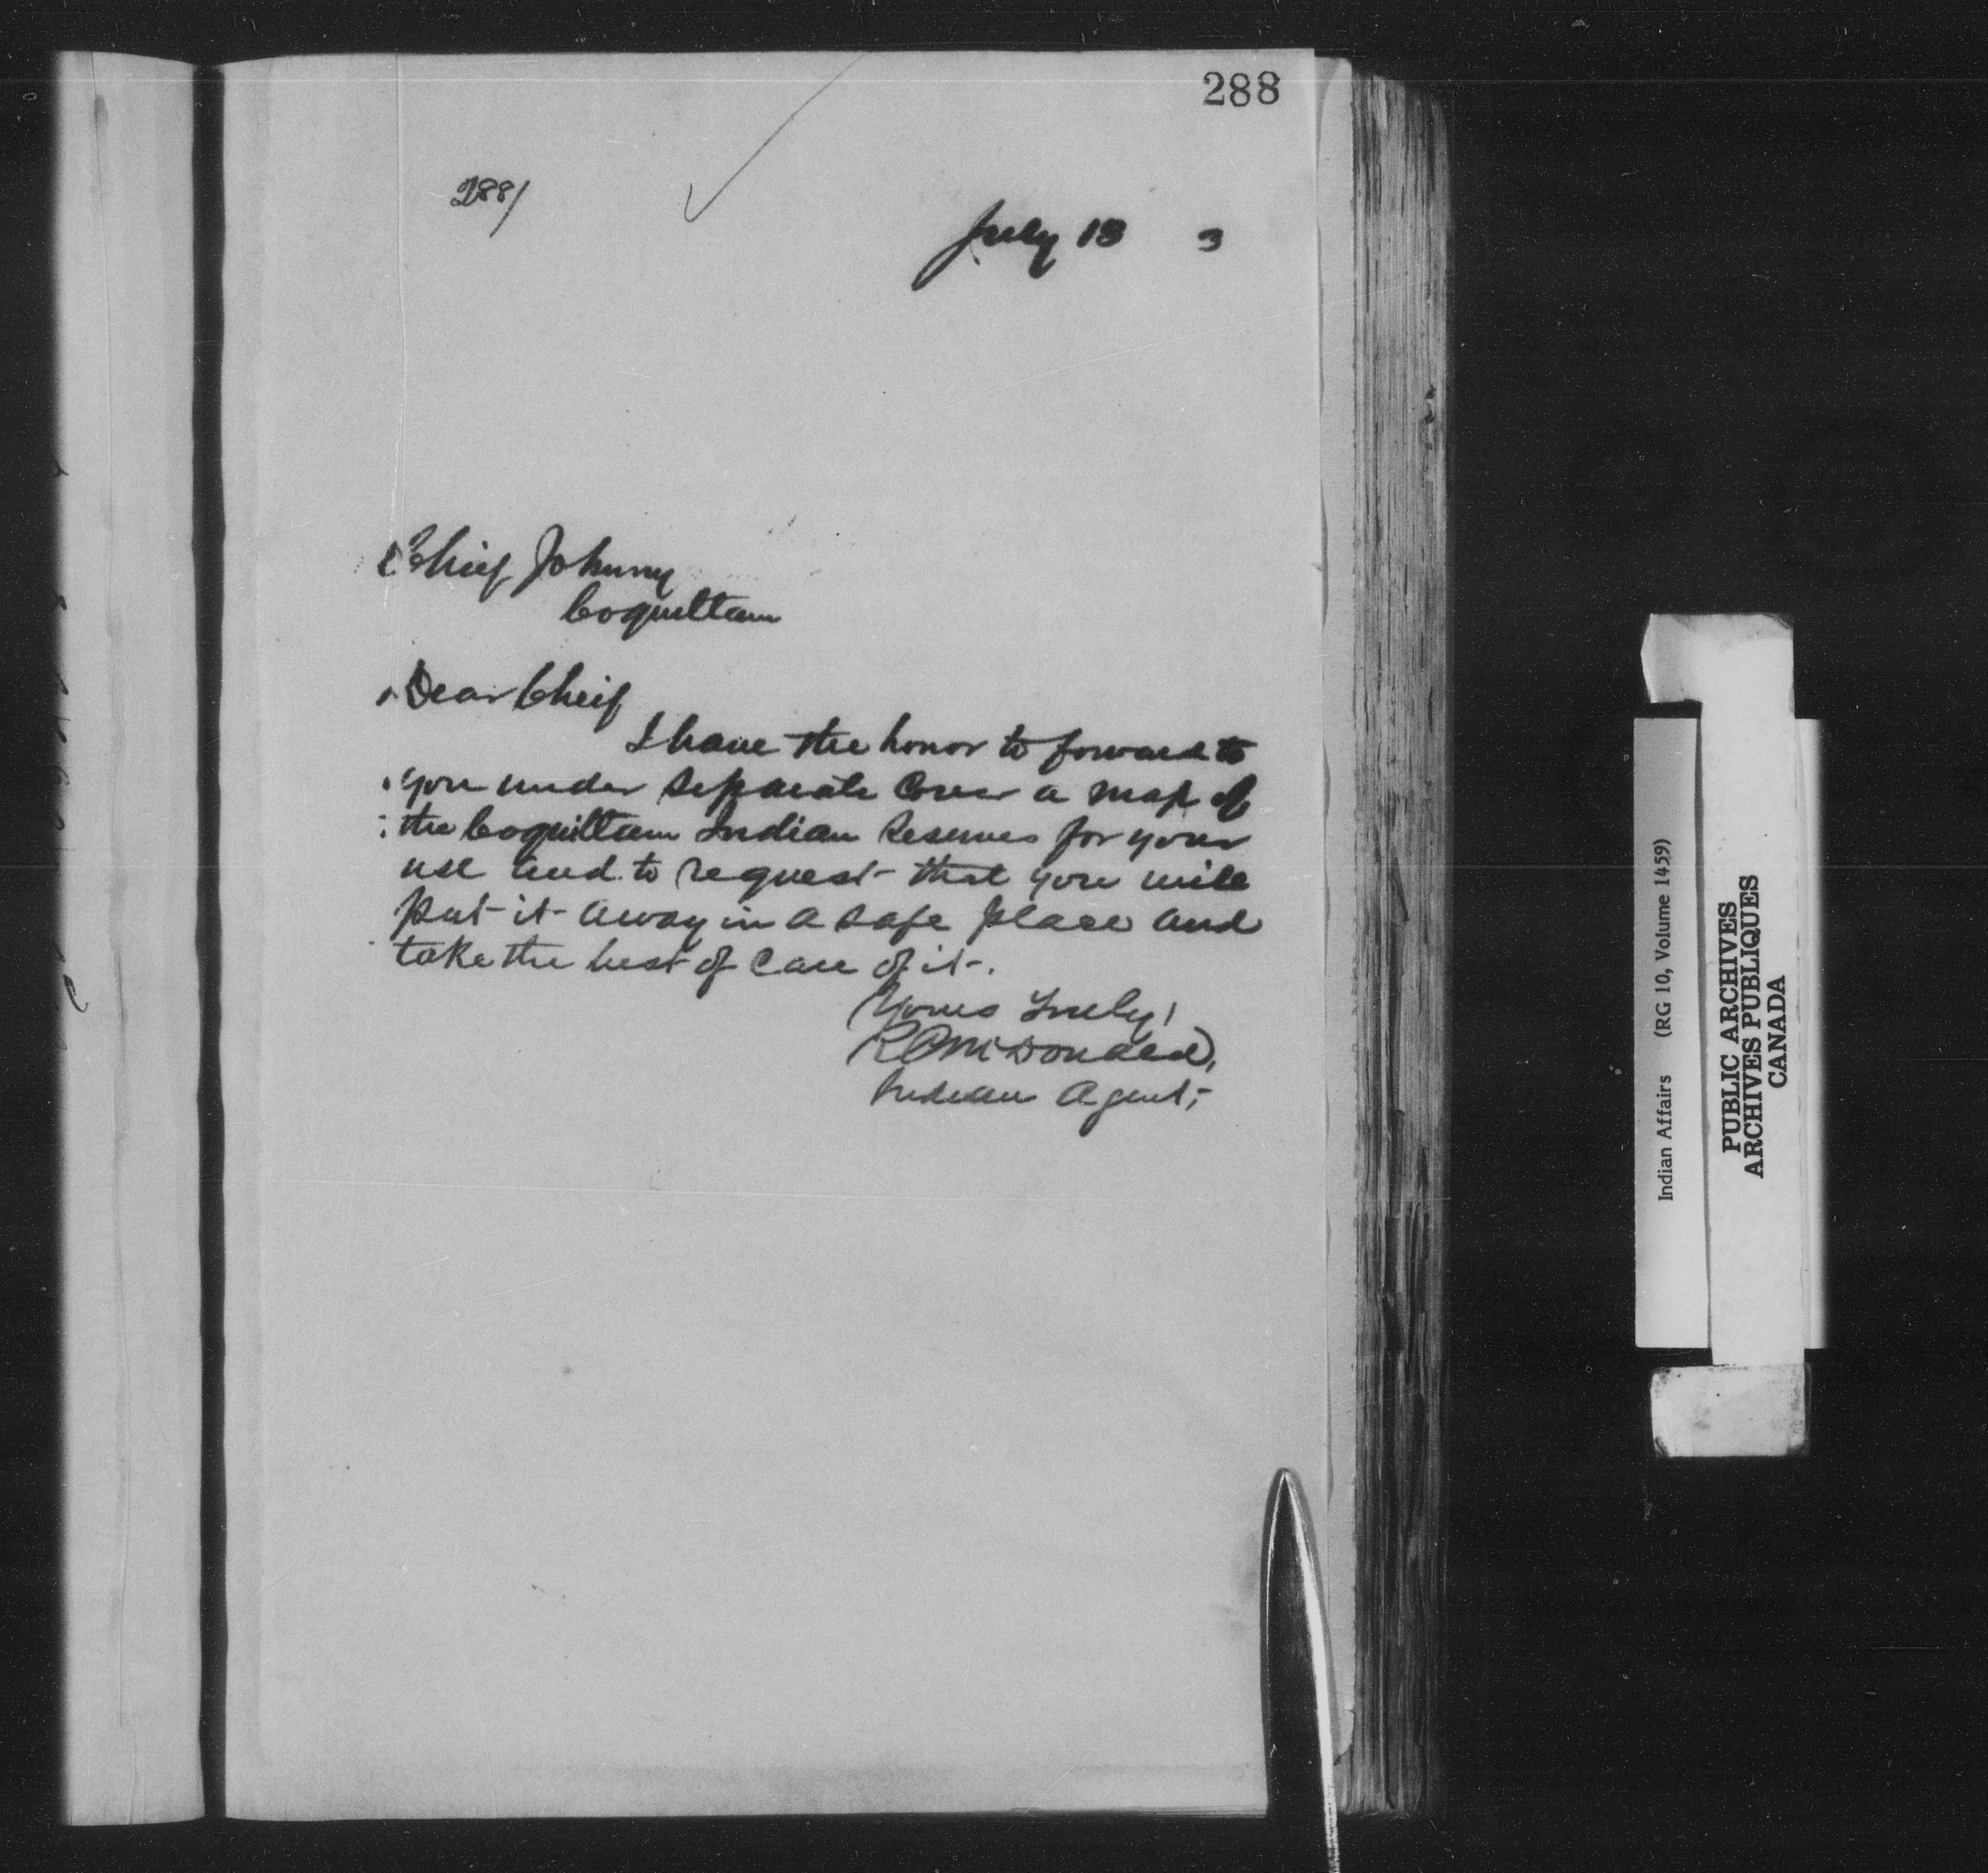 288
288/
July 13 3
Chief Johnny
Coquitlam
Dear Cheif
I have the honor to forward to
you under separate cover a map of
the Coquitlam Indian Reserves for your
use and to request that you will
put it away in a safe place and
take the best of care of it.
Yours Truly,
R C McDonald,
Indian Agent,
Indian Affairs (RG 10, Volume 1459)
PUBLIC ARCHIVES
ARCHIVES PUBLIQUES
CANADA